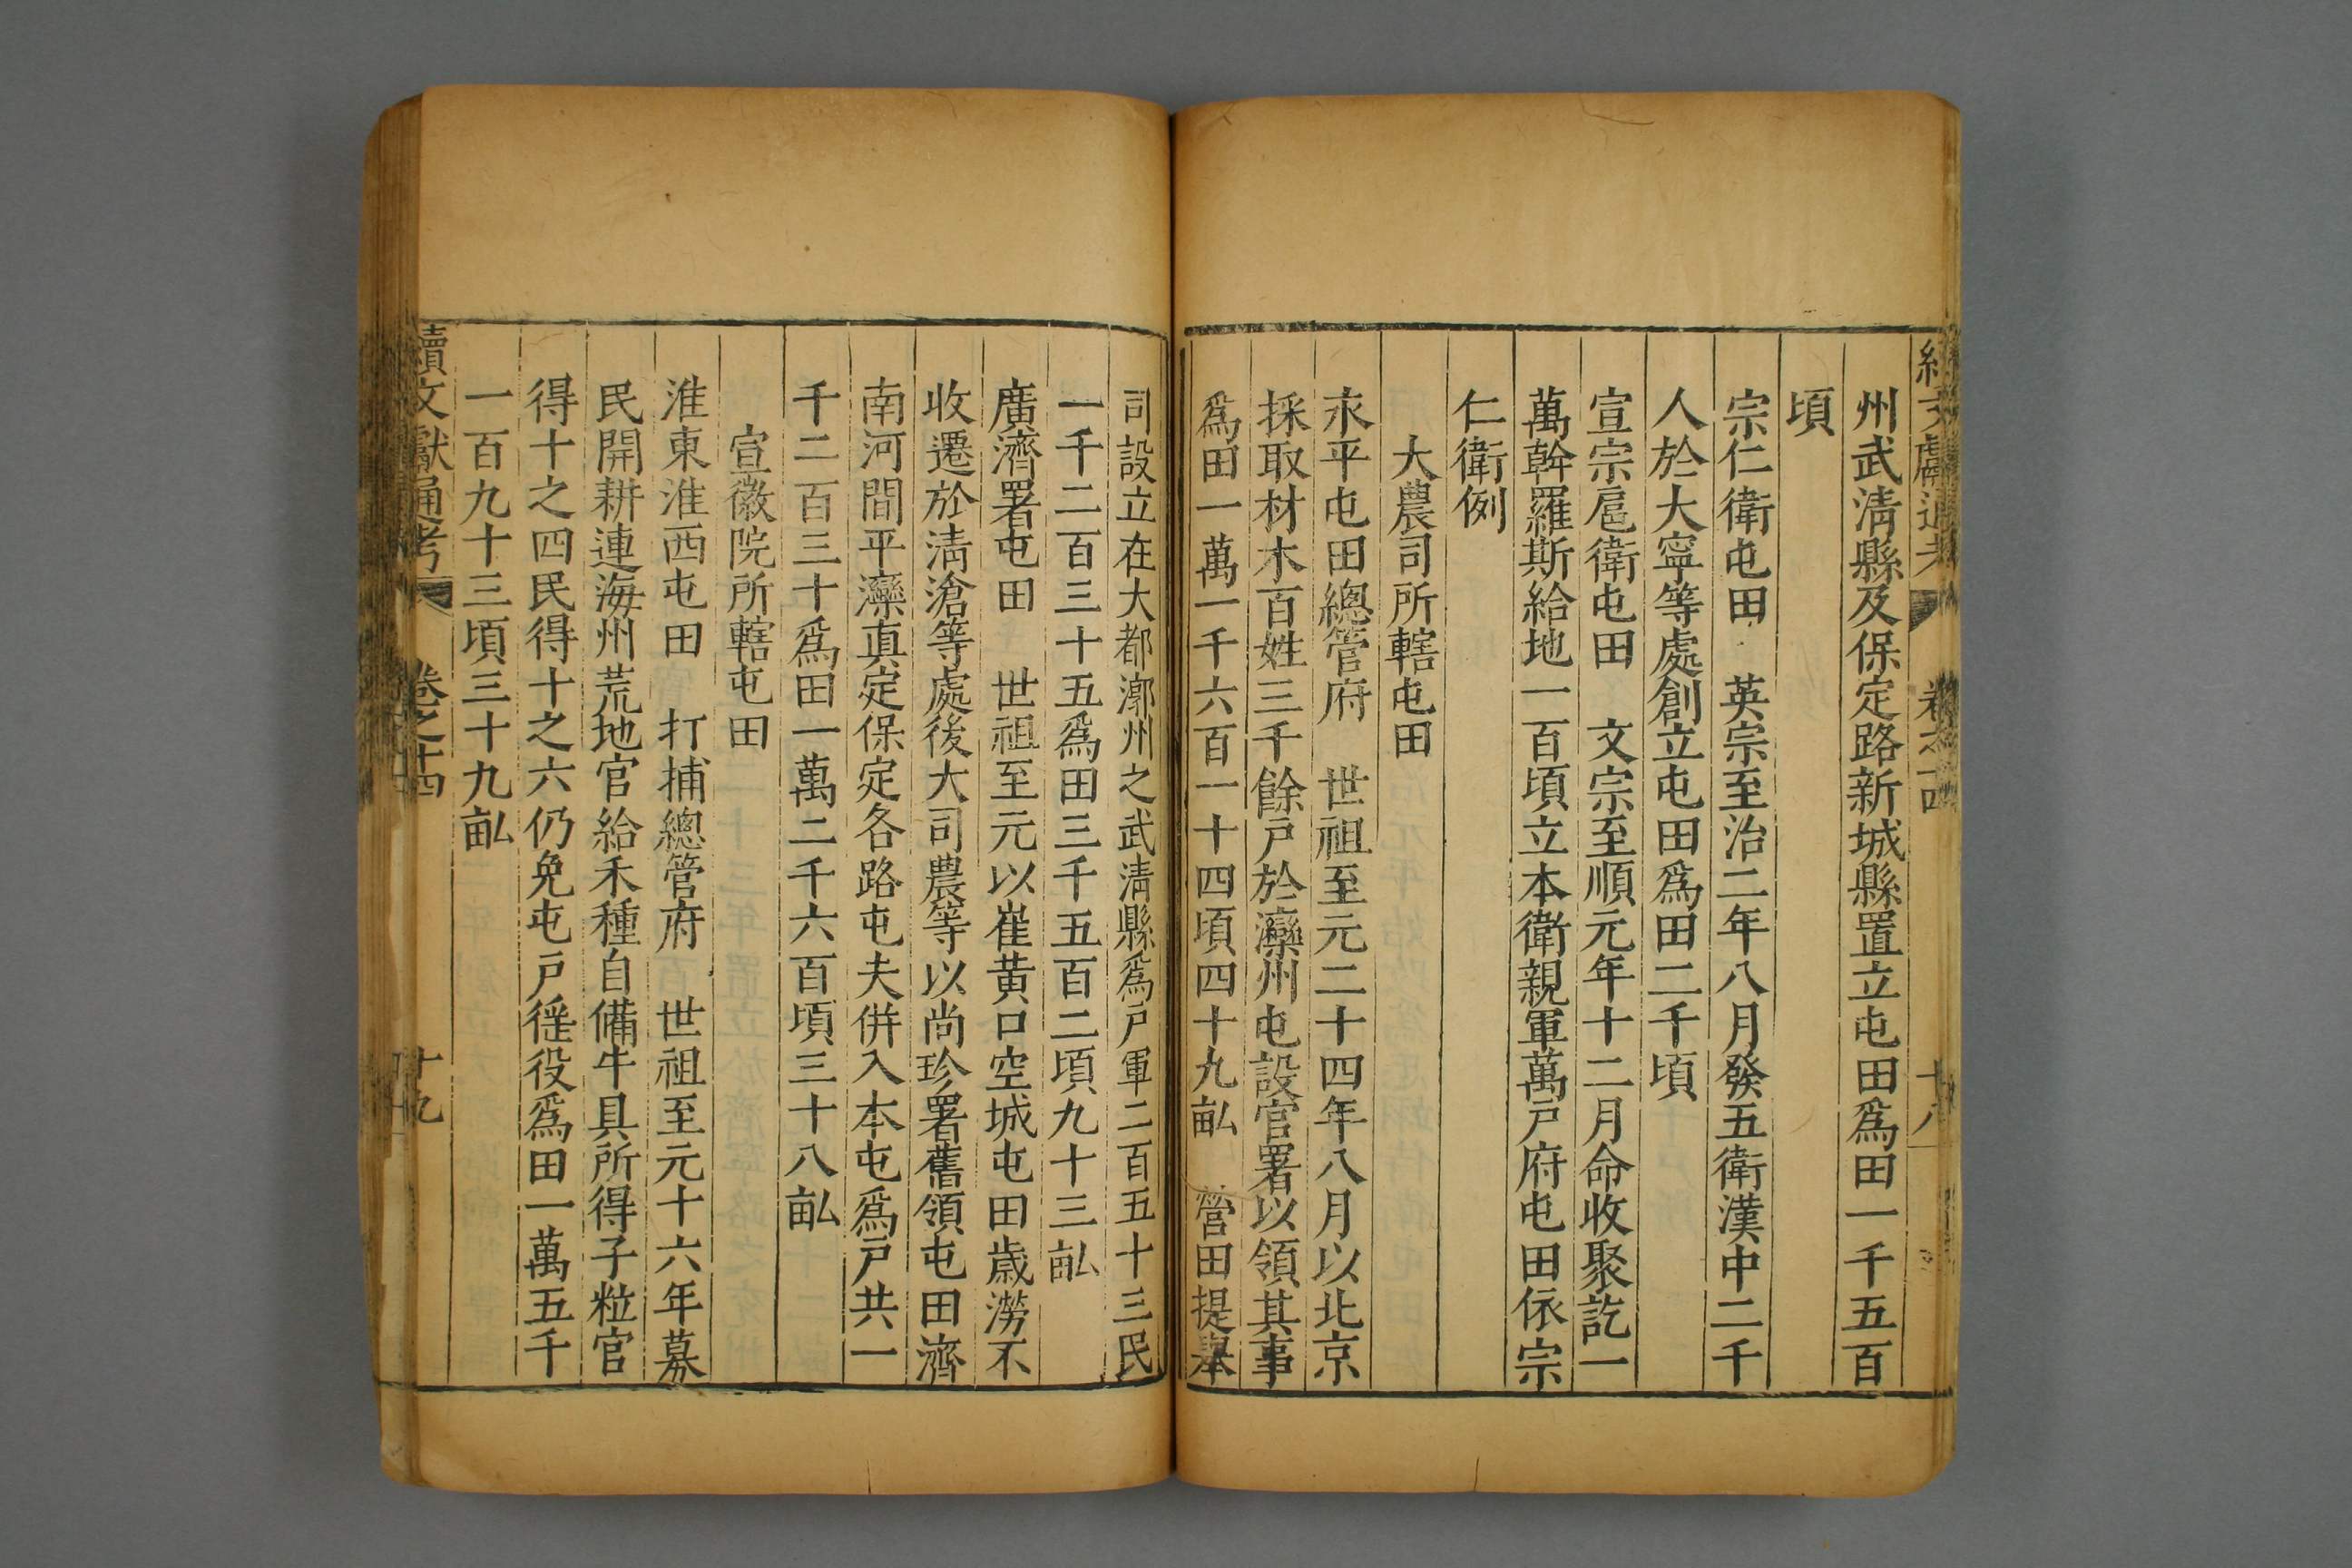 續文獻通考 卷之十四 十八
州武清縣及保定路新城縣置立屯田爲田一千五百
頃
宗仁衛屯田 英宗至治二年八月發五衛漢中二千
人於大寧等處創立屯田爲田二千頃
宣宗扈衛屯田 文宗至順元年十二月命收聚訖一
萬斡羅斯給地一百頃立本衛親軍萬戶府屯田依宗
仁衛例
大農司所轄屯田
永平屯田總管府 世祖至元二十四年八月以北京
採取材木百姓三千餘戶於灤州屯設官署以領其事
爲田一萬一千六百一十四頃四十九畝 營田提舉
司設立在大都漷州之武清縣爲戶軍二百五十三民
一千二百三十五爲田三千五百二頃九十三畝
廣濟署屯田 世祖至元以崔黃口空城屯田歲澇不
收遷於清滄等處後大司農等以尚珍署舊領屯田濟
南河間平灤真定保定各路屯夫併入本屯爲戶共一
千二百三十爲田一萬二千六百頃三十八畝
宣徽院所轄屯田
淮東淮西屯田 打捕總管府 世祖至元十六年募
民開耕連海州荒地官給禾種自備牛具所得子粒官
得十之四民得十之六仍免屯戶徭役爲田一萬五千
一百九十三頃三十九畝
續文獻通考 卷之十四 十九